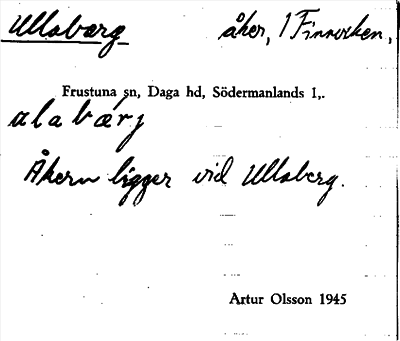 Ullaberg åker, 1 Finnvreken,
Frustuna sn, Daga hd, Södermanlands l,.
ulabærj
Åkern ligger vid Ullaberg.
Artur Olsson 1945